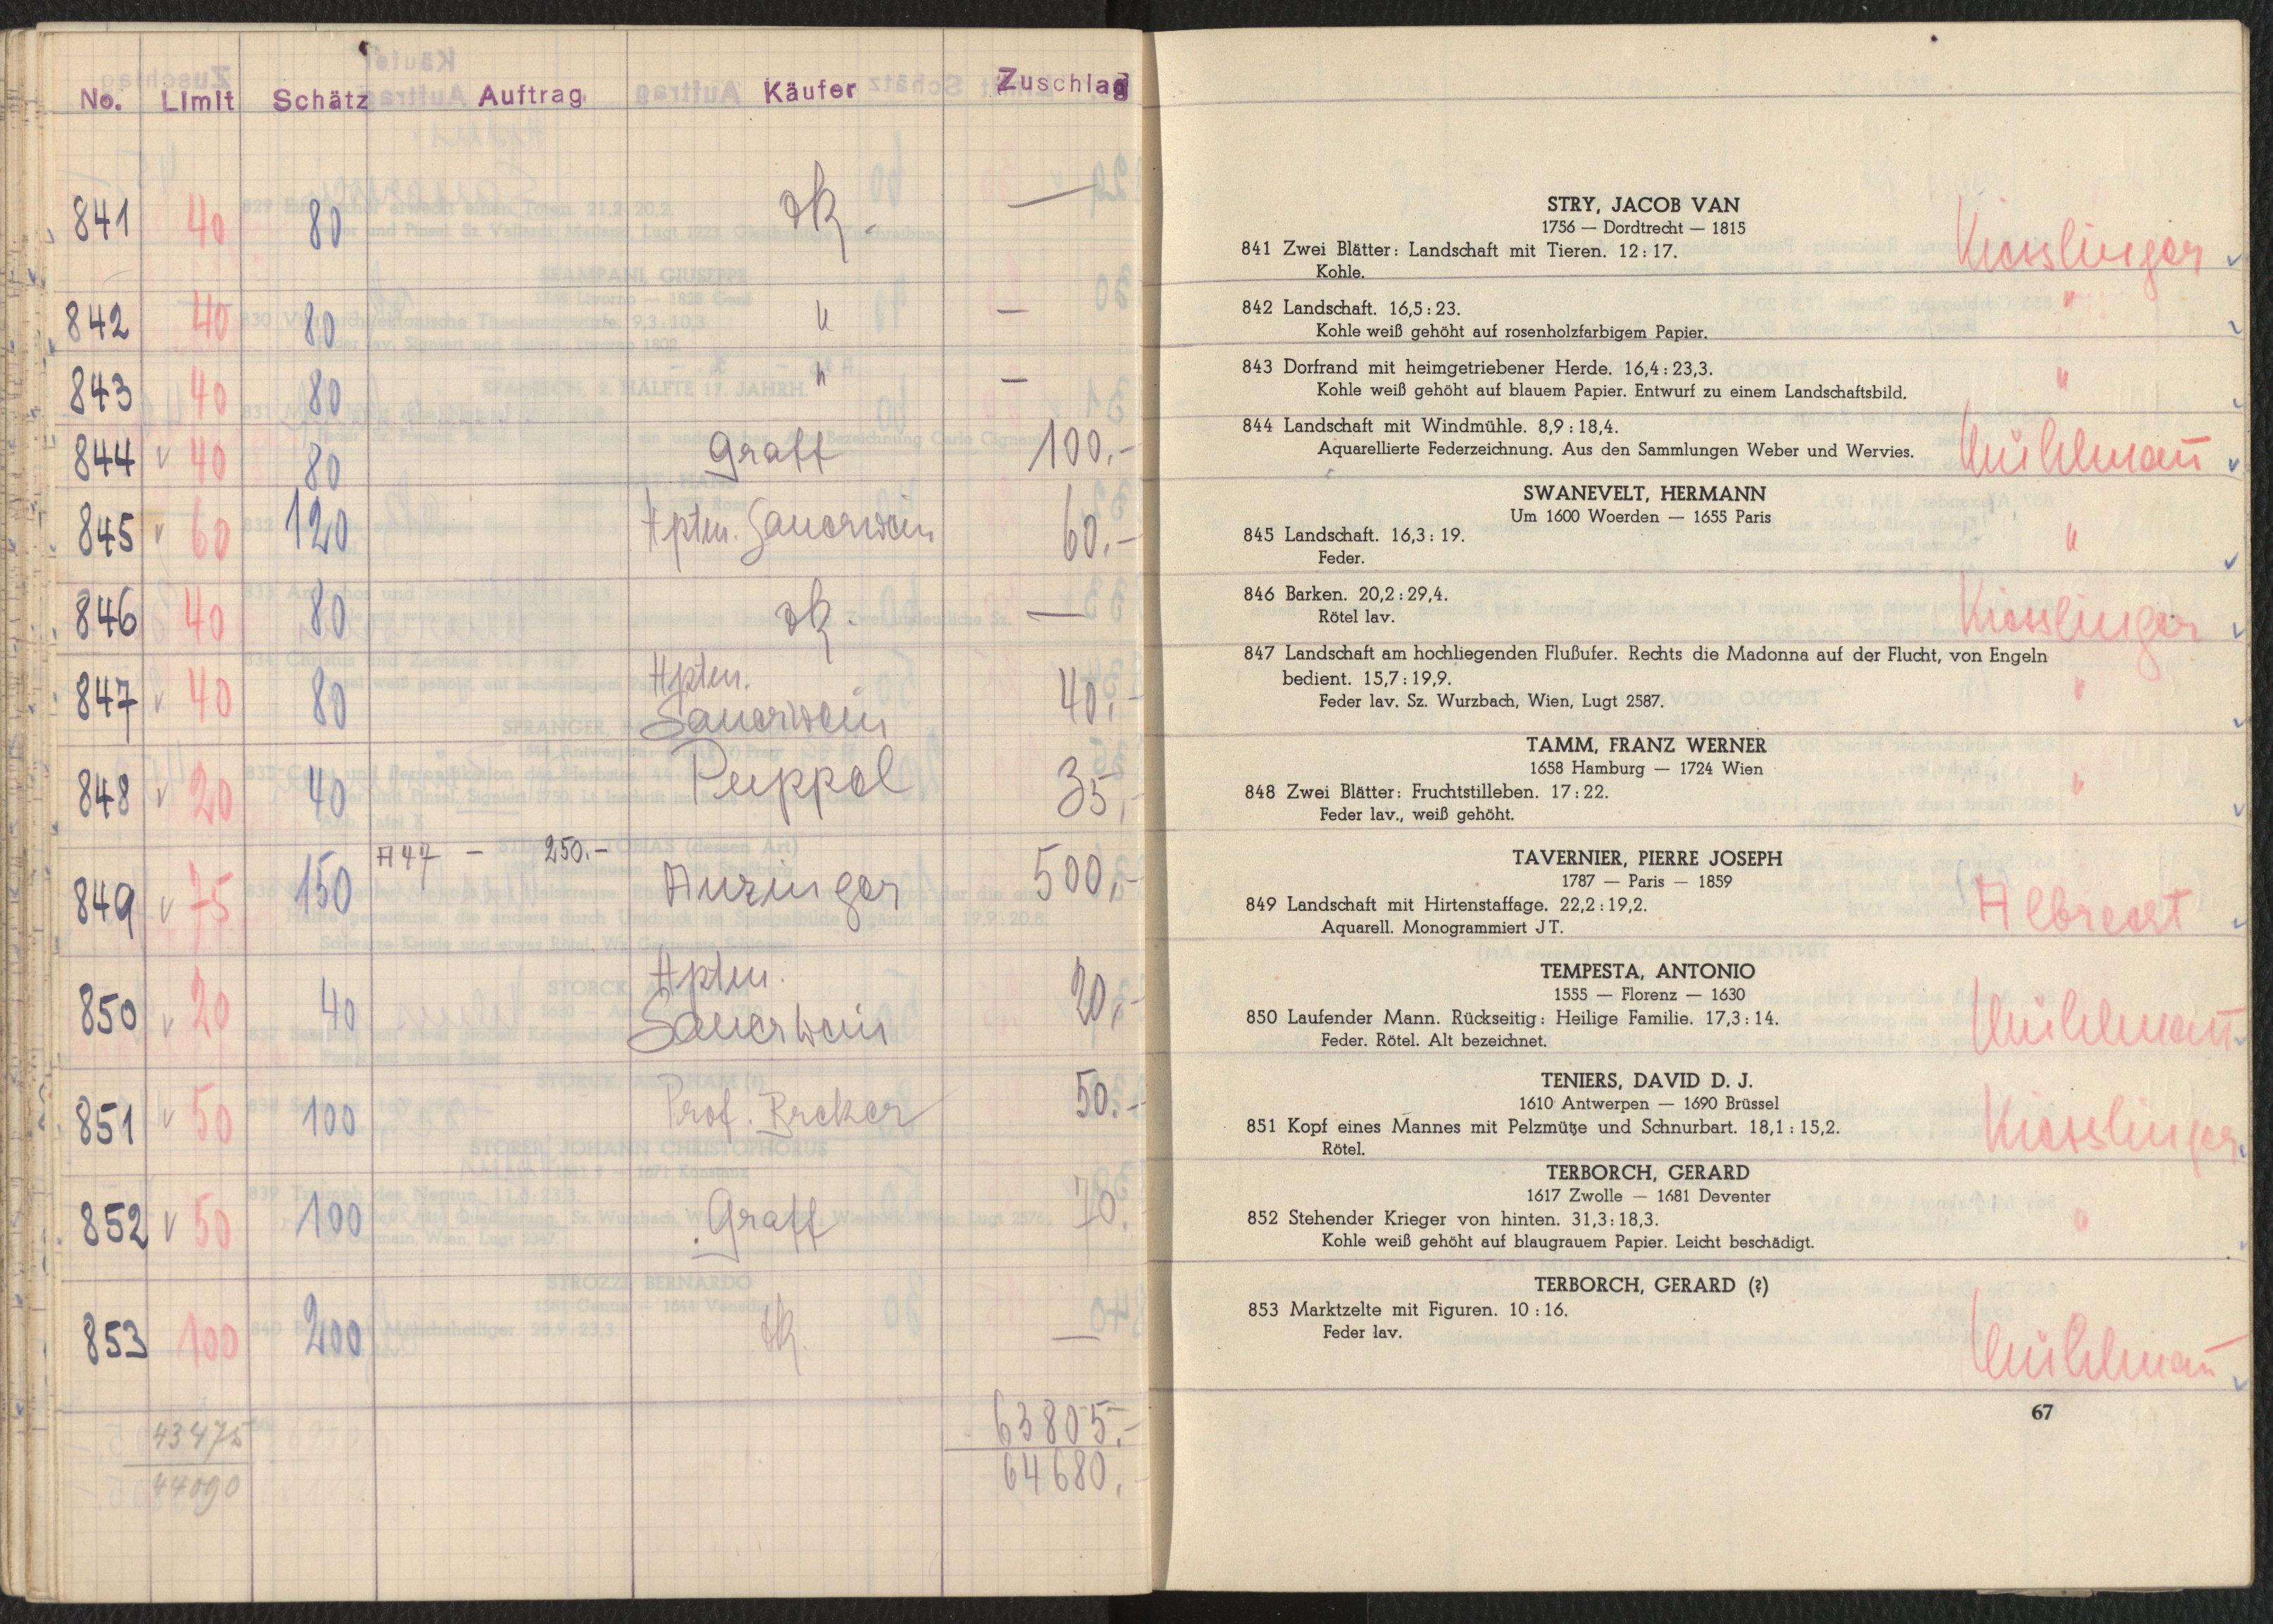 No. Limit Schätz Auftrag Käufer Zuschlag
841 40 80 —
842 40 80 " —
843 40 80 " —
844 v 40 80 Graff 100.-
845 v 60 120 Hptm. Sauerwein 60.-
846 40 80 —
847 v 40 80 Hptm. Sauerwein 40.-
848 v 20 40 35,-
849 v 75 150 A 47 — 250.- Anzinger 500,-
850 v 20 40 Hptm. Sauerwein 20,-
851 v 50 100 Prof. Breker 50.-
852 v 50 100 Graff 70.
853 100 200 —
43475 63805.-
44090 64680.-
STRY, JACOB VAN
1756 — Dordtrecht — 1815
841 Zwei Blätter: Landschaft mit Tieren. 12:17. Kiesslinger
Kohle.
842 Landschaft. 16,5:23. "
Kohle weiß gehöht auf rosenholzfarbigem Papier.
843 Dorfrand mit heimgetriebener Herde. 16,4:23,3. "
Kohle weiß gehöht auf blauem Papier. Entwurf zu einem Landschaftsbild.
844 Landschaft mit Windmühle. 8,9:18,4. Mühlmann
Aquarellierte Federzeichnung. Aus den Sammlungen Weber und Wervies.
SWANEVELT, HERMANN
Um 1600 Woerden — 1655 Paris
845 Landschaft. 16,3:19. "
Feder.
846 Barken. 20,2:29,4. Kiesslinger
Rötel lav.
847 Landschaft am hochliegenden Flußufer. Rechts die Madonna auf der Flucht, von Engeln
bedient. 15,7:19,9. "
Feder lav. Sz. Wurzbach, Wien, Lugt 2587.
TAMM, FRANZ WERNER
1658 Hamburg — 1724 Wien
848 Zwei Blätter: Fruchtstilleben. 17:22. "
Feder lav., weiß gehöht.
TAVERNIER, PIERRE JOSEPH
1787 — Paris — 1859
849 Landschaft mit Hirtenstaffage. 22,2:19,2. Albrecht
Aquarell. Monogrammiert JT.
TEMPESTA, ANTONIO
1555 — Florenz — 1630
850 Laufender Mann. Rückseitig: Heilige Familie. 17,3:14. Mühlmann
Feder. Rötel. Alt bezeichnet.
TENIERS, DAVID D. J.
1610 Antwerpen — 1690 Brüssel
851 Kopf eines Mannes mit Pelzmütze und Schnurbart. 18,1:15,2. Kiesslinger
Rötel.
TERBORCH, GERARD
1617 Zwolle — 1681 Deventer
852 Stehender Krieger von hinten. 31,3:18,3. "
Kohle weiß gehöht auf blaugrauem Papier. Leicht beschädigt.
TERBORCH, GERARD (?)
853 Marktzelte mit Figuren. 10:16.
Feder lav. Mühlmann
67